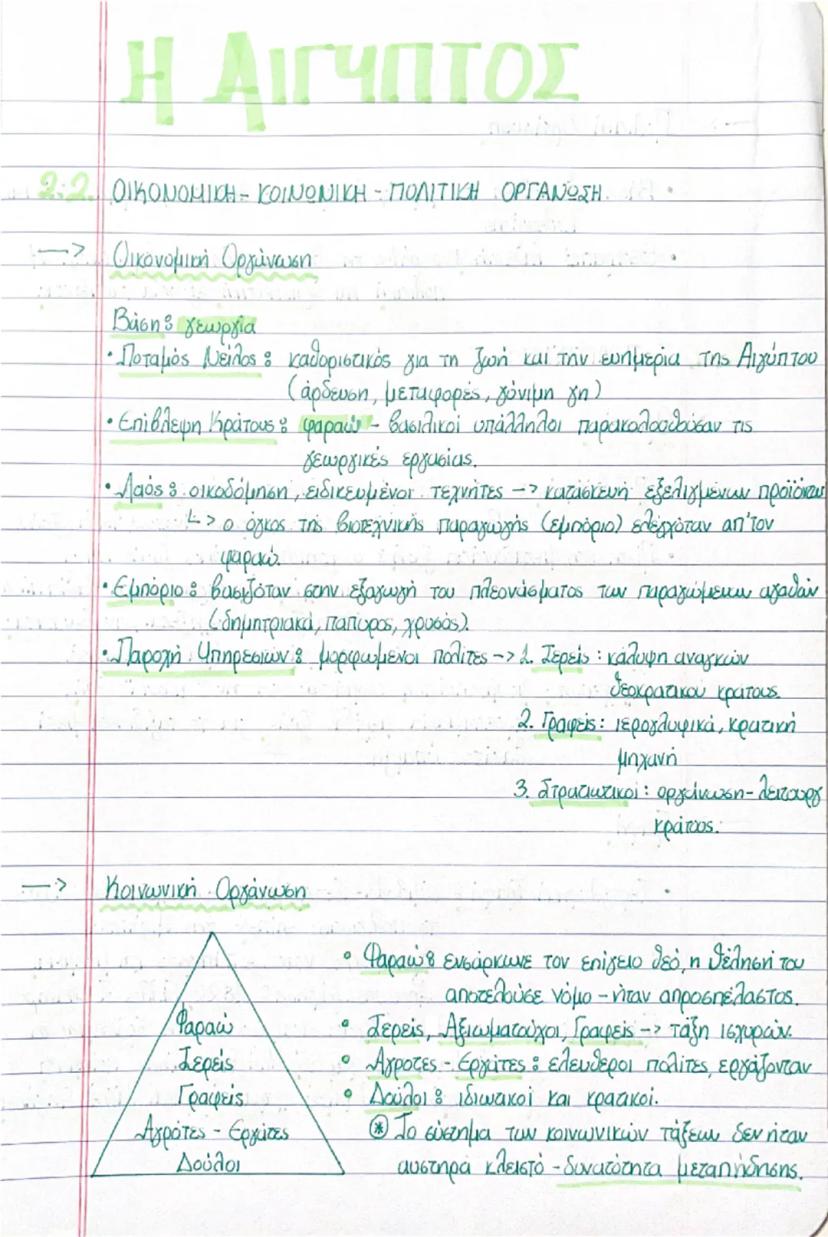 Η ΑΙΓΥΠΤΟΣ
2.2. ΟΙΚΟΝΟΜΙΚΗ - ΚΟΙΝΩΝΙΚΗ - ΠΟΛΙΤΙΚΗ ΟΡΓΑΝΩΣΗ
—> Οικονομική Οργάνωση
Βάση: γεωργία
• Ποταμός Νείλος: καθοριστικός για τη ζωή και την ευημερία της Αιγύπτου
(άρδευση, μεταφορές, γόνιμη γη)
• Επίβλεψη Κράτους: φαραώ - βασιλικοί υπάλληλοι παρακολουθούσαν τις
γεωργικές εργασίας.
• Λαός: οικοδόμηση, ειδικευμένοι τεχνήτες -> κατασκευή εξελιγμένων προϊόντων
↳> ο όγκος της βιοτεχνικής παραγωγής (εμπόριο) ελεγχόταν απ'τον
φαραώ.
• Εμπόριο: βασιζόταν στην εξαγωγή του πλεονάσματος των παραγώμενων αγαθών
(δημητριακά, πάπυρος, χρυσός).
• Παροχή Υπηρεσιών: μορφωμένοι πολίτες -> 1. Ιερείς: κάλυψη αναγκών
θεοκρατικού κράτους.
2. Γραφείς: ιερογλυφικά, κρατική
μηχανή
3. Στρατιωτικοί: οργάνωση - λειτουργ
κράτους.
—> Κοινωνική Οργάνωση
Φαραώ
Ιερείς
Γραφείς
Αγρότες - Εργάτες
Δούλοι
• Φαραώ: ενσάρκωνε τον επίγειο θεό, η θέλησή του
αποτελούσε νόμο - ήταν απροσπέλαστος.
• Ιερείς, Αξιωματούχοι, Γραφείς -> τάξη ισχυρών.
• Αγρότες - Εργάτες: ελεύθεροι πολίτες, εργάζονταν
• Δούλοι: ιδιωτικοί και κρατικοί.
⊛ Το σύστημα των κοινωνικών τάξεων δεν ήταν
αυστηρά κλειστό - δυνατότητα μεταπήδησης.